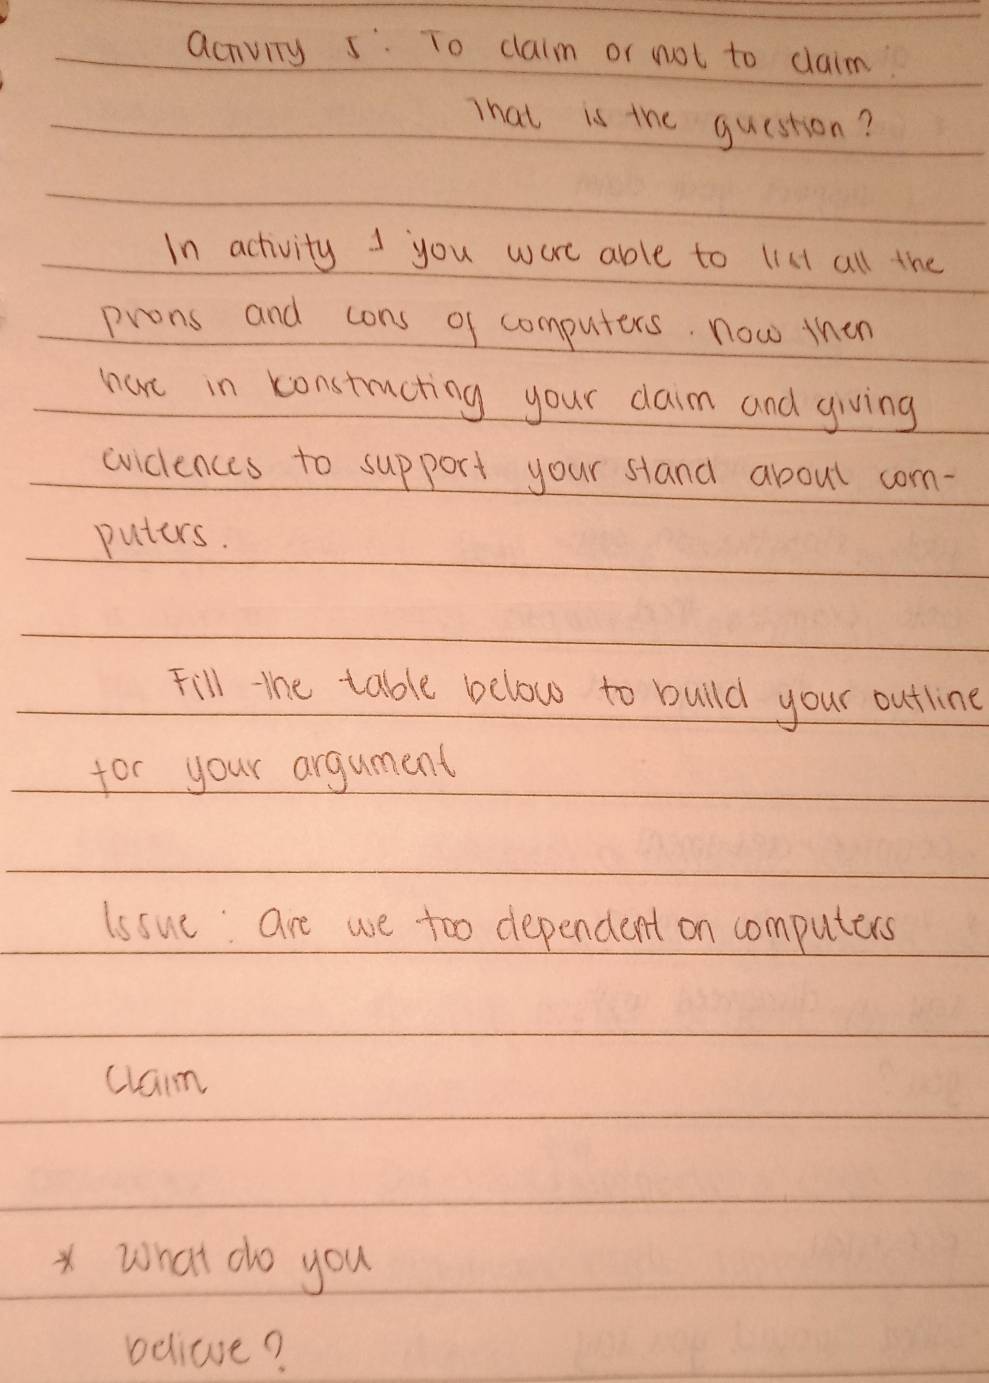 Activity 5: To claim or not to claim:
That is the question?
In activity 1 you were able to list all the
prons and cons of computers. Now then
here in constructing your claim and giving
evidences to support your stand about com-
puters.
Fill the table below to build your outline
for your argument
Issue: Are we too dependent on computers
Claim
* What do you
believe?